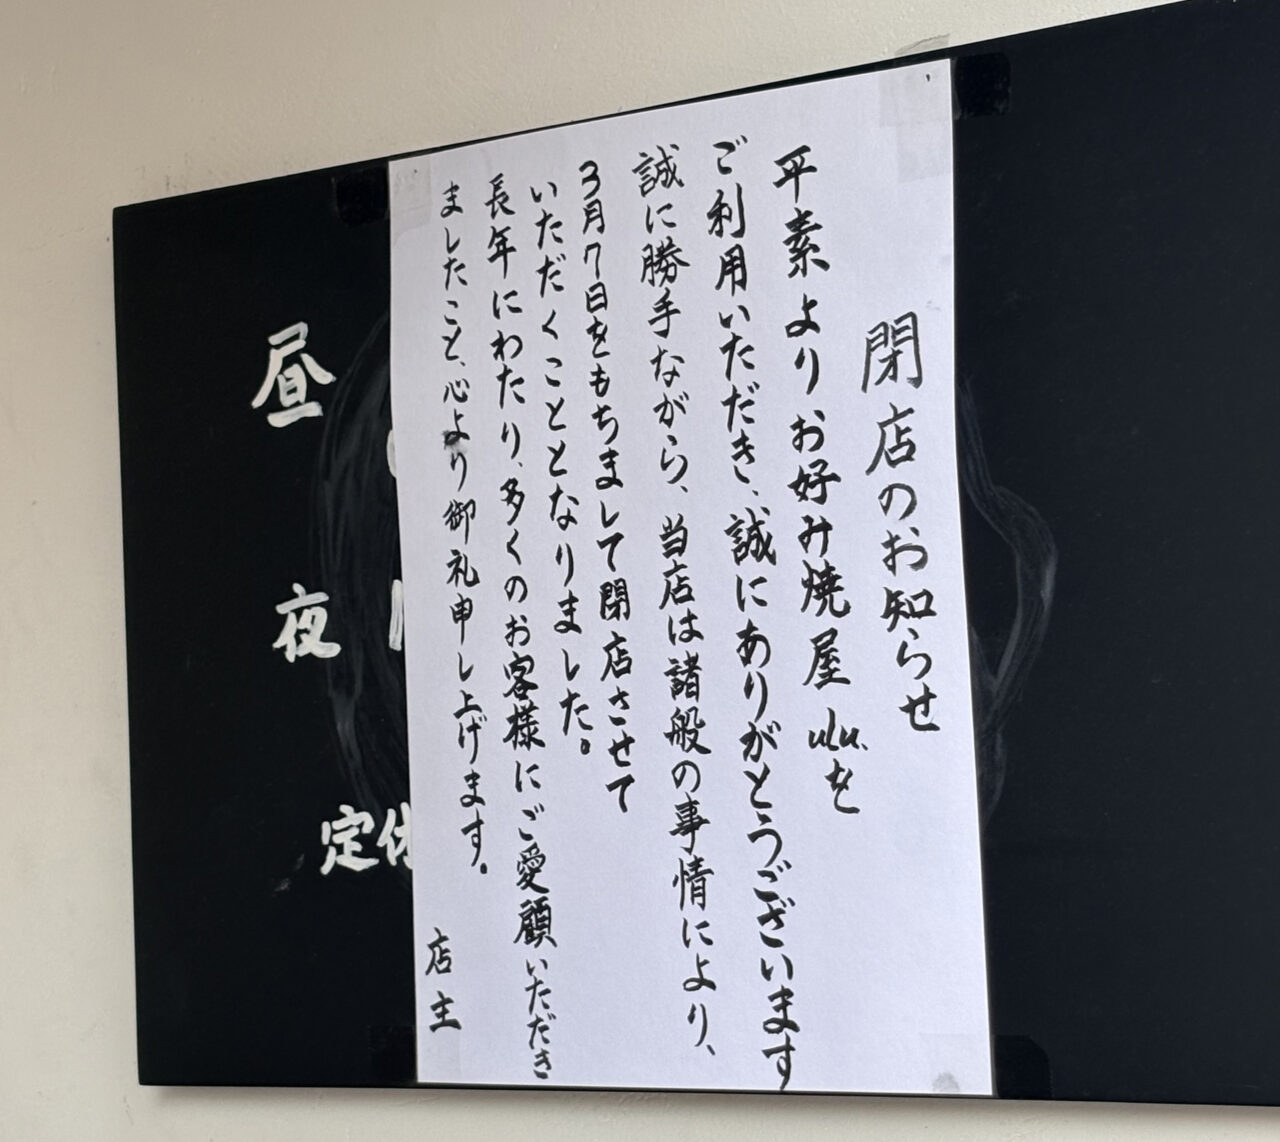 閉店のお知らせ
平素よりお好み焼屋 ulu.を
ご利用いただき、誠にありがとうございます
誠に勝手ながら、当店は諸般の事情により、
3月7日をもちまして閉店させて
いただくこととなりました。
長年にわたり、多くのお客様にご愛顧いただき
ましたこと、心より御礼申し上げます。
店主
昼
夜
定休